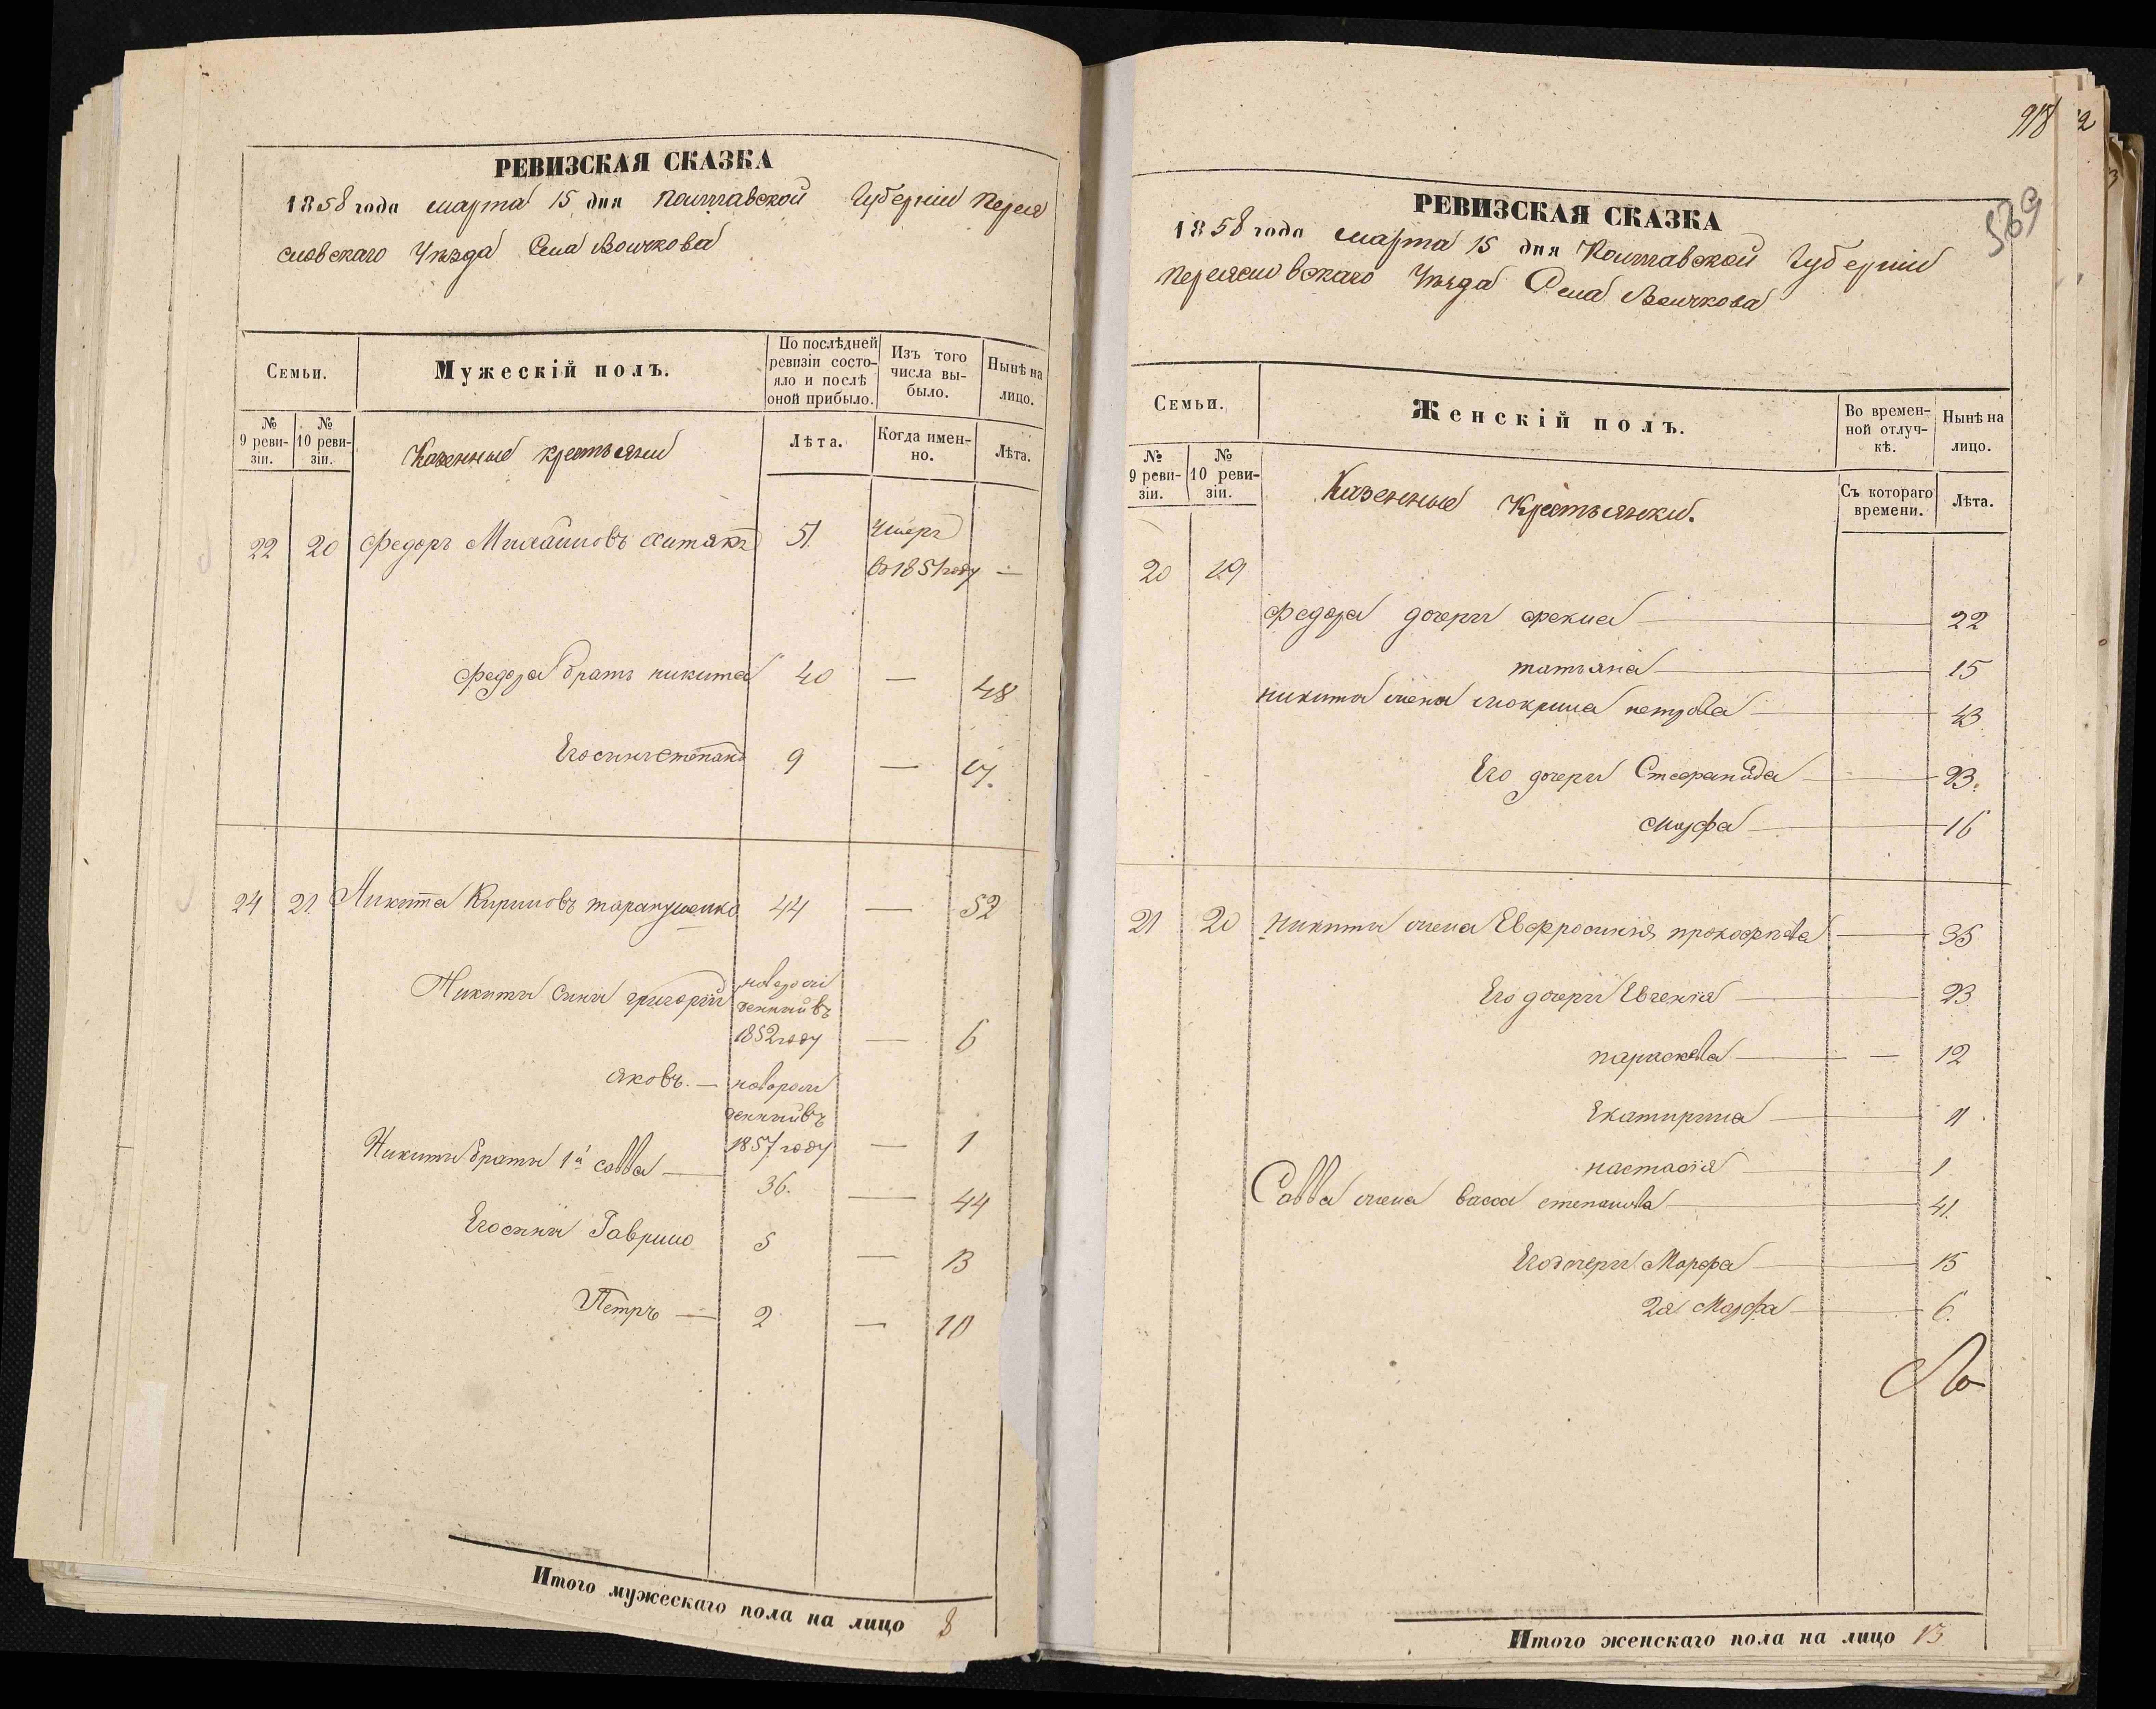 РЕВИЗСКАЯ СКАЗКА
1858 года марта 15 дня Полтавской Губерніи Перея
словскаго Уѣзда Села Войчкова
Семьи.
Мужескій полъ.
По послѣдней ревизіи состояло и послѣ оной прибыло.
Изъ того числа выбыло.
Нынѣ на лицо.
№ 9 ревизіи.
№ 10 ревизіи.
Казенные крестьяни
Лѣта.
Когда именно.
Лѣта.
22 20 Федоръ Михайловъ 51. Умеръ
въ 1851 году —
Федора братъ никита 40 — 48
Его сынъ степанъ 9 — 17.
24 21. Никита Кириловъ тарапушенко 44 — 52
Никиты сыны григорій новорож
денный въ
1852 году — 6
яковъ. — новорож
денный въ
1857 году — 1
Никиты браты 1й савва — 36. — 44
Его сыны Гаврило 5 — 13
Петръ — 2 — 10
Итого мужескаго пола на лицо 8
918
569
РЕВИЗСКАЯ СКАЗКА
1858 года марта 15 дня Полтавской Губерніи
Переясловскаго Уѣзда Села Войчкова
Семьи.
Женскій полъ.
Во временной отлучкѣ.
Нынѣ на лицо.
№ 9 ревизіи.
№ 10 ревизіи.
Казенные Крестьянки.
Съ котораго времени.
Лѣта.
20 19
Федора дочери Фекла — 22
татьяна — 15
никита жена мокрина петрова — 43
Его дочери Стефанида — 23.
Марфа — 16
21 20 Никиты жена Евфросинія прокофьева — 35
Его дочери Евгенія — 23
параскева — — 12
Екатирина — 11
настасія — 1
Савва жена васса степанова — 41.
Его дочери Марфа — 15
2я Марфа — 6.
Итого женскаго пола на лицо 13